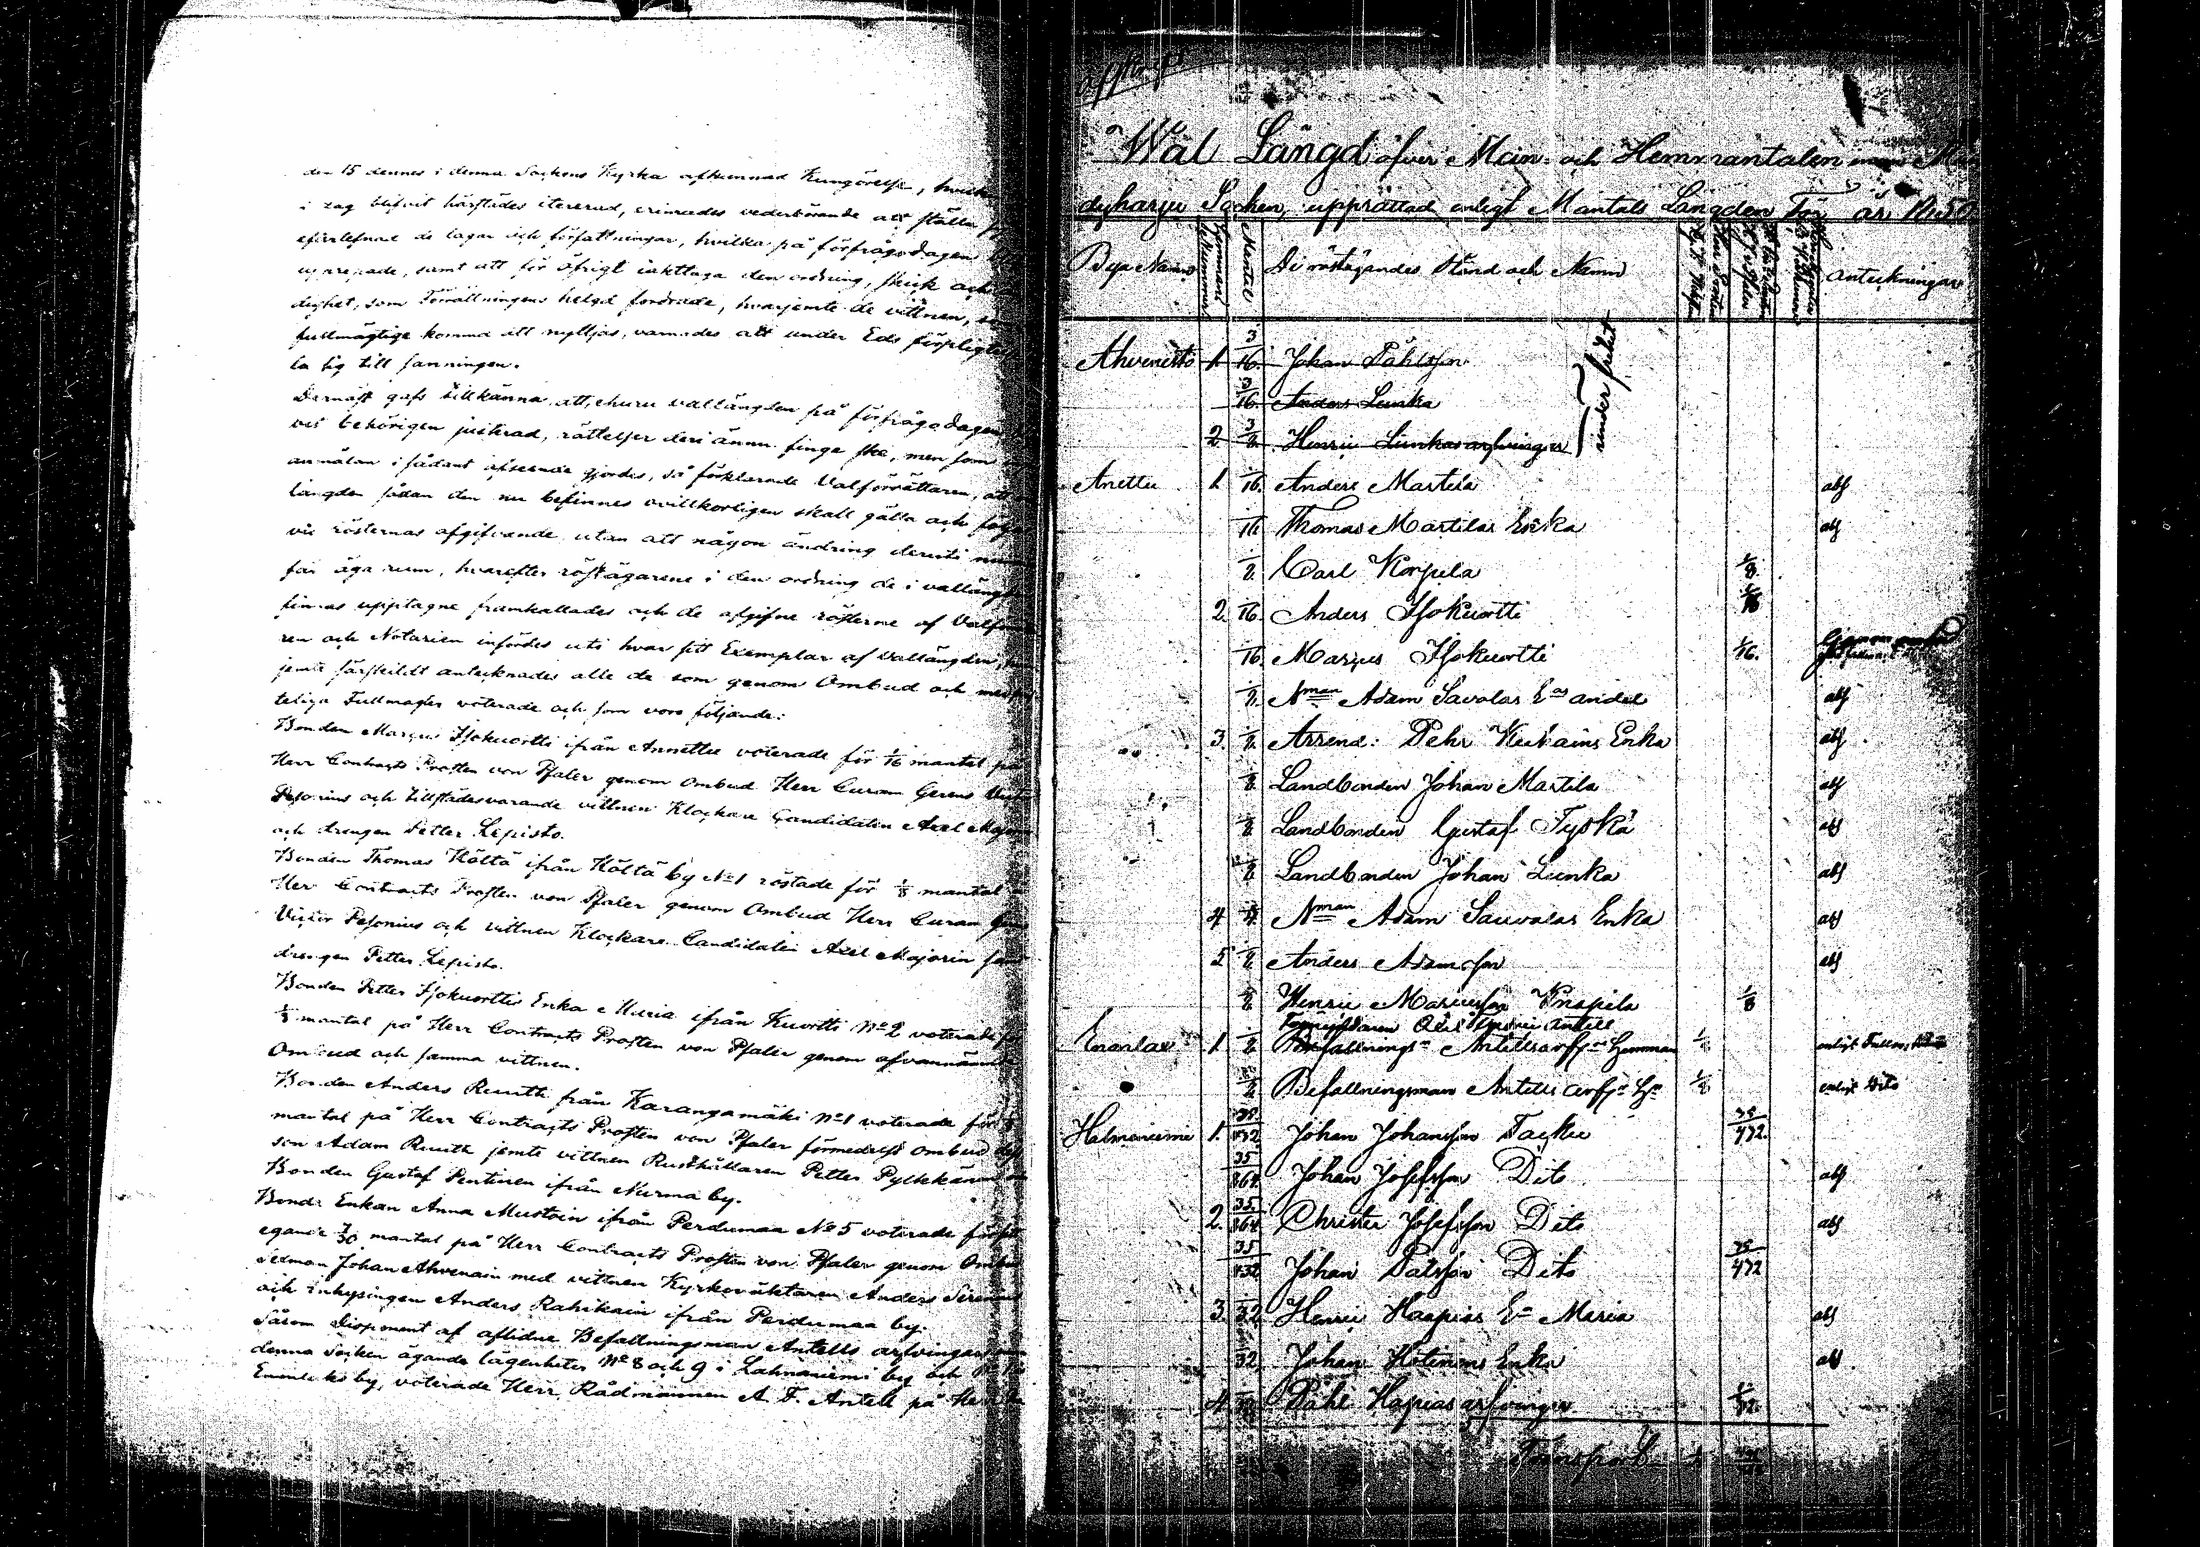 den 15 dennes i denna Sockens Kyrka afkunnad Kungörelse,
i dag blifvit härstädes itererad, erinrades vederbörande att ställa
efterlefnad de lagar och författningar, hvilka på förfrågodagen
uppreprade, samt att för öfrigt iakttaga den ordning, skick och
dighet, som Förrättningens helgd fordrade, hvarjemte de vittnen,
fullmägtige komma att nyttjas, varnades att under Eds förpligtelse
la sig till sanningen.
Dernäst gafs tillkänna, att, ehuru vallängden på förfrågodagen
vis behörigen justerad, rättelser deri ännu finge ske, men som
anmälan i sådant afseende gjordes, så förklarade Valförrättaren, att
längden sådan den nu befinnes ovillkorligen skall gälla och följas
vid rösternas afgifvande utan att någon ändring deruti
får äga rum, hvarefter röstägarene i den ordning de i vallängden
finnas upptagne framkallades och de afgifne rösterne af Valförrätta
ren och Notarien infördes uti hvar sitt Exemplar af Vallängden,
jemte särskildt antecknades alle de som genom Ombud och med
teliga Fullmagter voterade och som voro följande:
Bonden Marcus Isokuortti ifrån Annettu voterade för 1/16 mantal på
Herr Contracts Prosten von Pfaler genom ombud Herr Curam Gerens Victor
Pesonius och tillstädesvarande vittnen Klockare Candidaten Axel Majorin
och drengen Petter Lepisto.
Bonden Thomas Hältä ifrån Hältä by No 1 röstade för 1/8 mantal
Herr Contracts Prosten von Pfaler genom Ombud Herr Curam
Victor Pesonius och vittnen Klockare Candidaten Axel Majorin
drengen Petter Lepisto.
Bonden Petter Isokuorttis Enka Maria ifrån Kuortti No 2 voterade för
1/8 mantal på Herr Contracts Prosten von Pfaler genom ofvannämnde
Ombud och samma vittnen.
Bonden Anders Ruuth från Karangamäki No 1 voterade för
mantal på Herr Contracts Prosten von Pfaler förmedelst ombud
son Adam Ruuth jemte vittnen Rusthållaren Petter Pylkkänen
Bonden Gustaf Pentinen ifrån Nurma by.
Bonde Enkan Anna Mustoin ifrån Pertumaa No 5 voterade för
egande mantal på Herr Contracts Prosten von Pfaler genom Ombud
Sexman Johan Ahvenain med vittnen Kyrkoväktaren Anders
och inhysingen Anders Rahikain ifrån Perdumaa by.
Såsom Disponent af aflidne Befallningsman Antells arfvingars
denna socken ägande lägenheter No 8 och 9 i Lahnaniemi by och
Enonlaks by, voterade Herr Rådmannen A. F. Antell på Herr
afskrift
Wal Längd öfver Man- och Hemmantalen
dyharju Socken, upprättad enligt Mantals Längden För år 1850
Bya Namn Hemmans Nummer Mantal De röstägandes Stånd och Namn anteckningar
Ahvenisto 1. 3/16 Johan Påhlsson
3/16 Anders Lunka
2 3/8 Henric Lunkas arfvingar
under frihet
Anettu 1. 1/16 Anders Martila abs
1/16 Thomas Martilas Enka abs
1/8 Carl Korpela 1/8
2. 1/16 Anders Isokuortti 1/16
1/16. Marcus Isokuortti 1/16.
1/8 Nman Adam Savolas Eas andel abs
3. 1/8 Arrend: Pehr Keikains Enka abs
1/8 Landbonden Johan Martila abs
1/8 Landbonden Gustaf Tyskä abs
1/8 Landbonden Johan Lunka abs
4 1/4 Nman Adam Sauvolas Enka abs
5 1/8 Anders Adamsson abs
1/8 Henric Marcusson Knapila 1/8
Enonlax 1. 1/8 Befallnings Antells arfs hemman 1/8 enligt Fullm.
1/8 Befallningsman Antells arfs hn 1/8 enligt Dito
Halmaniemi 1. 35/432 Johan Johansson Tacku 35/432.
35/864 Johan Josefsson Dito abs
2. 35/864 Christer Josefsson Dito abs
35/432 Johan Pålsson Dito 35/432
3. 1/32 Henric Haapias Ea Maria abs
1/32. Johan Hölinens Enka abs
4. 1/32 Påhl Hapias arfvingar 1/32.
Transport